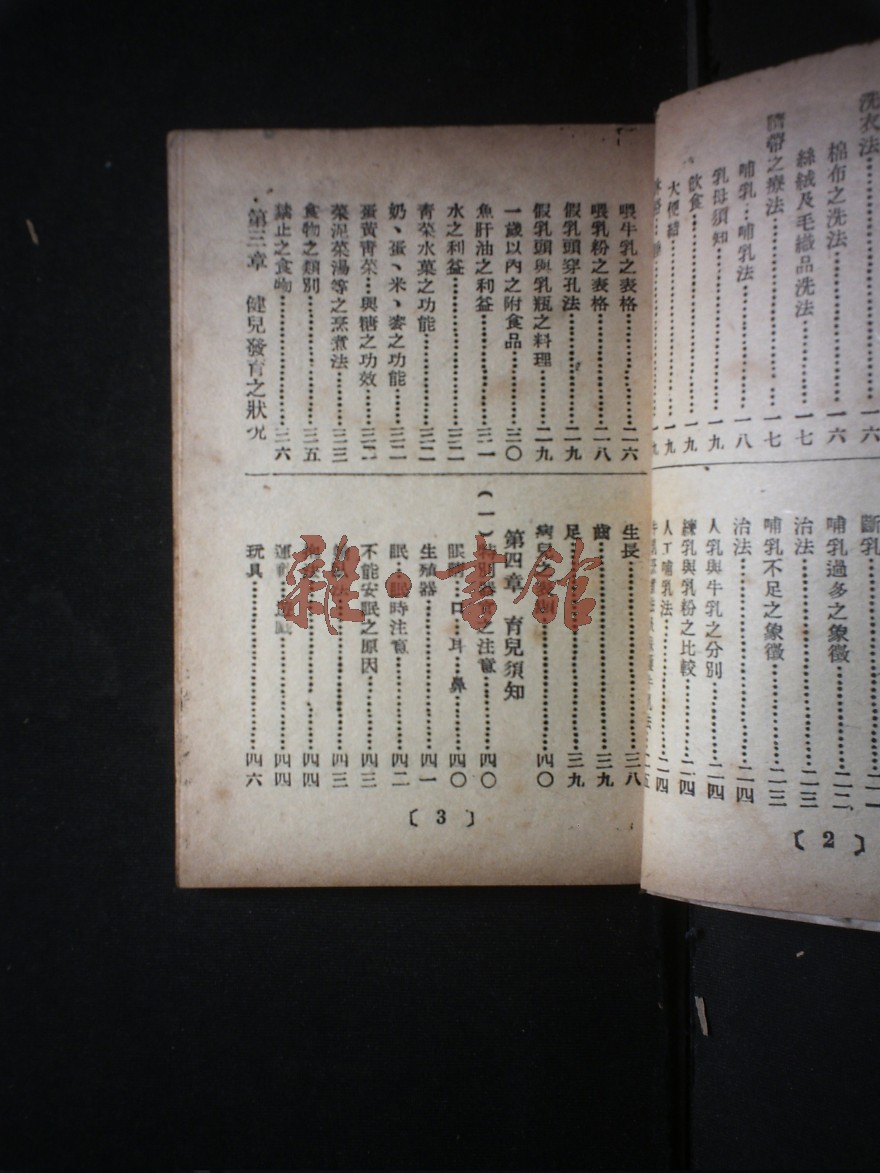 洗衣法⋯⋯一六
棉布之洗法⋯⋯一六
絲絨及毛織品洗法⋯⋯一七
臍帶之療法⋯⋯一七
哺乳⋯哺乳法⋯⋯一八
乳母須知⋯⋯一九
飲食⋯⋯一九
大便結⋯⋯一九
斷乳⋯⋯二一
哺乳過多之象徵⋯⋯二二
治法⋯⋯二三
哺乳不足之象徵⋯⋯二三
治法⋯⋯二四
人乳與牛乳之分別⋯⋯二四
煉乳與乳粉之比較⋯⋯二四
人工哺乳法⋯⋯二四
〔2〕
喂牛乳之表格⋯⋯二六
喂乳粉之表格⋯⋯二八
假乳頭穿孔法⋯⋯二九
假乳頭與乳瓶之料理⋯⋯二九
一歲以內之附食品⋯⋯三〇
魚肝油之利益⋯⋯三一
水之利益⋯⋯三二
靑菜水菓之功能⋯⋯三二
奶、蛋、米、麥之功能⋯⋯三二
蛋黃靑菜⋯與糖之功效⋯⋯三二
菜泥菜湯等之烹煮法⋯⋯三三
食物之類別⋯⋯三五
禁止之食物⋯⋯三六
第三章 健兒發育之狀況
生長⋯⋯三八
齒⋯⋯三九
足⋯⋯三九
病兒之⋯⋯四〇
第四章 育兒須知
(一)特別器官之注意⋯⋯四〇
眼睛⋯口⋯耳⋯鼻⋯⋯四〇
生殖器⋯⋯四一
眠⋯眠時注意⋯⋯四二
不能安眠之原因⋯⋯四三
⋯⋯四三
⋯⋯四四
運動⋯遊戲⋯⋯四四
玩具⋯⋯四六
〔3〕
雜·書館